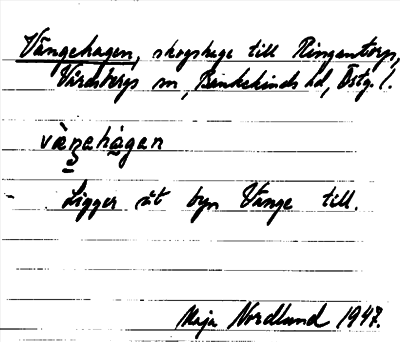 Vängehagen, skogshage till Ringentorp,
Vårdsbergs sn, Bankekinds hd, Östg. l.
vängehagen
Ligger åt byn Vänge till.
Maja Nordlund 1947.